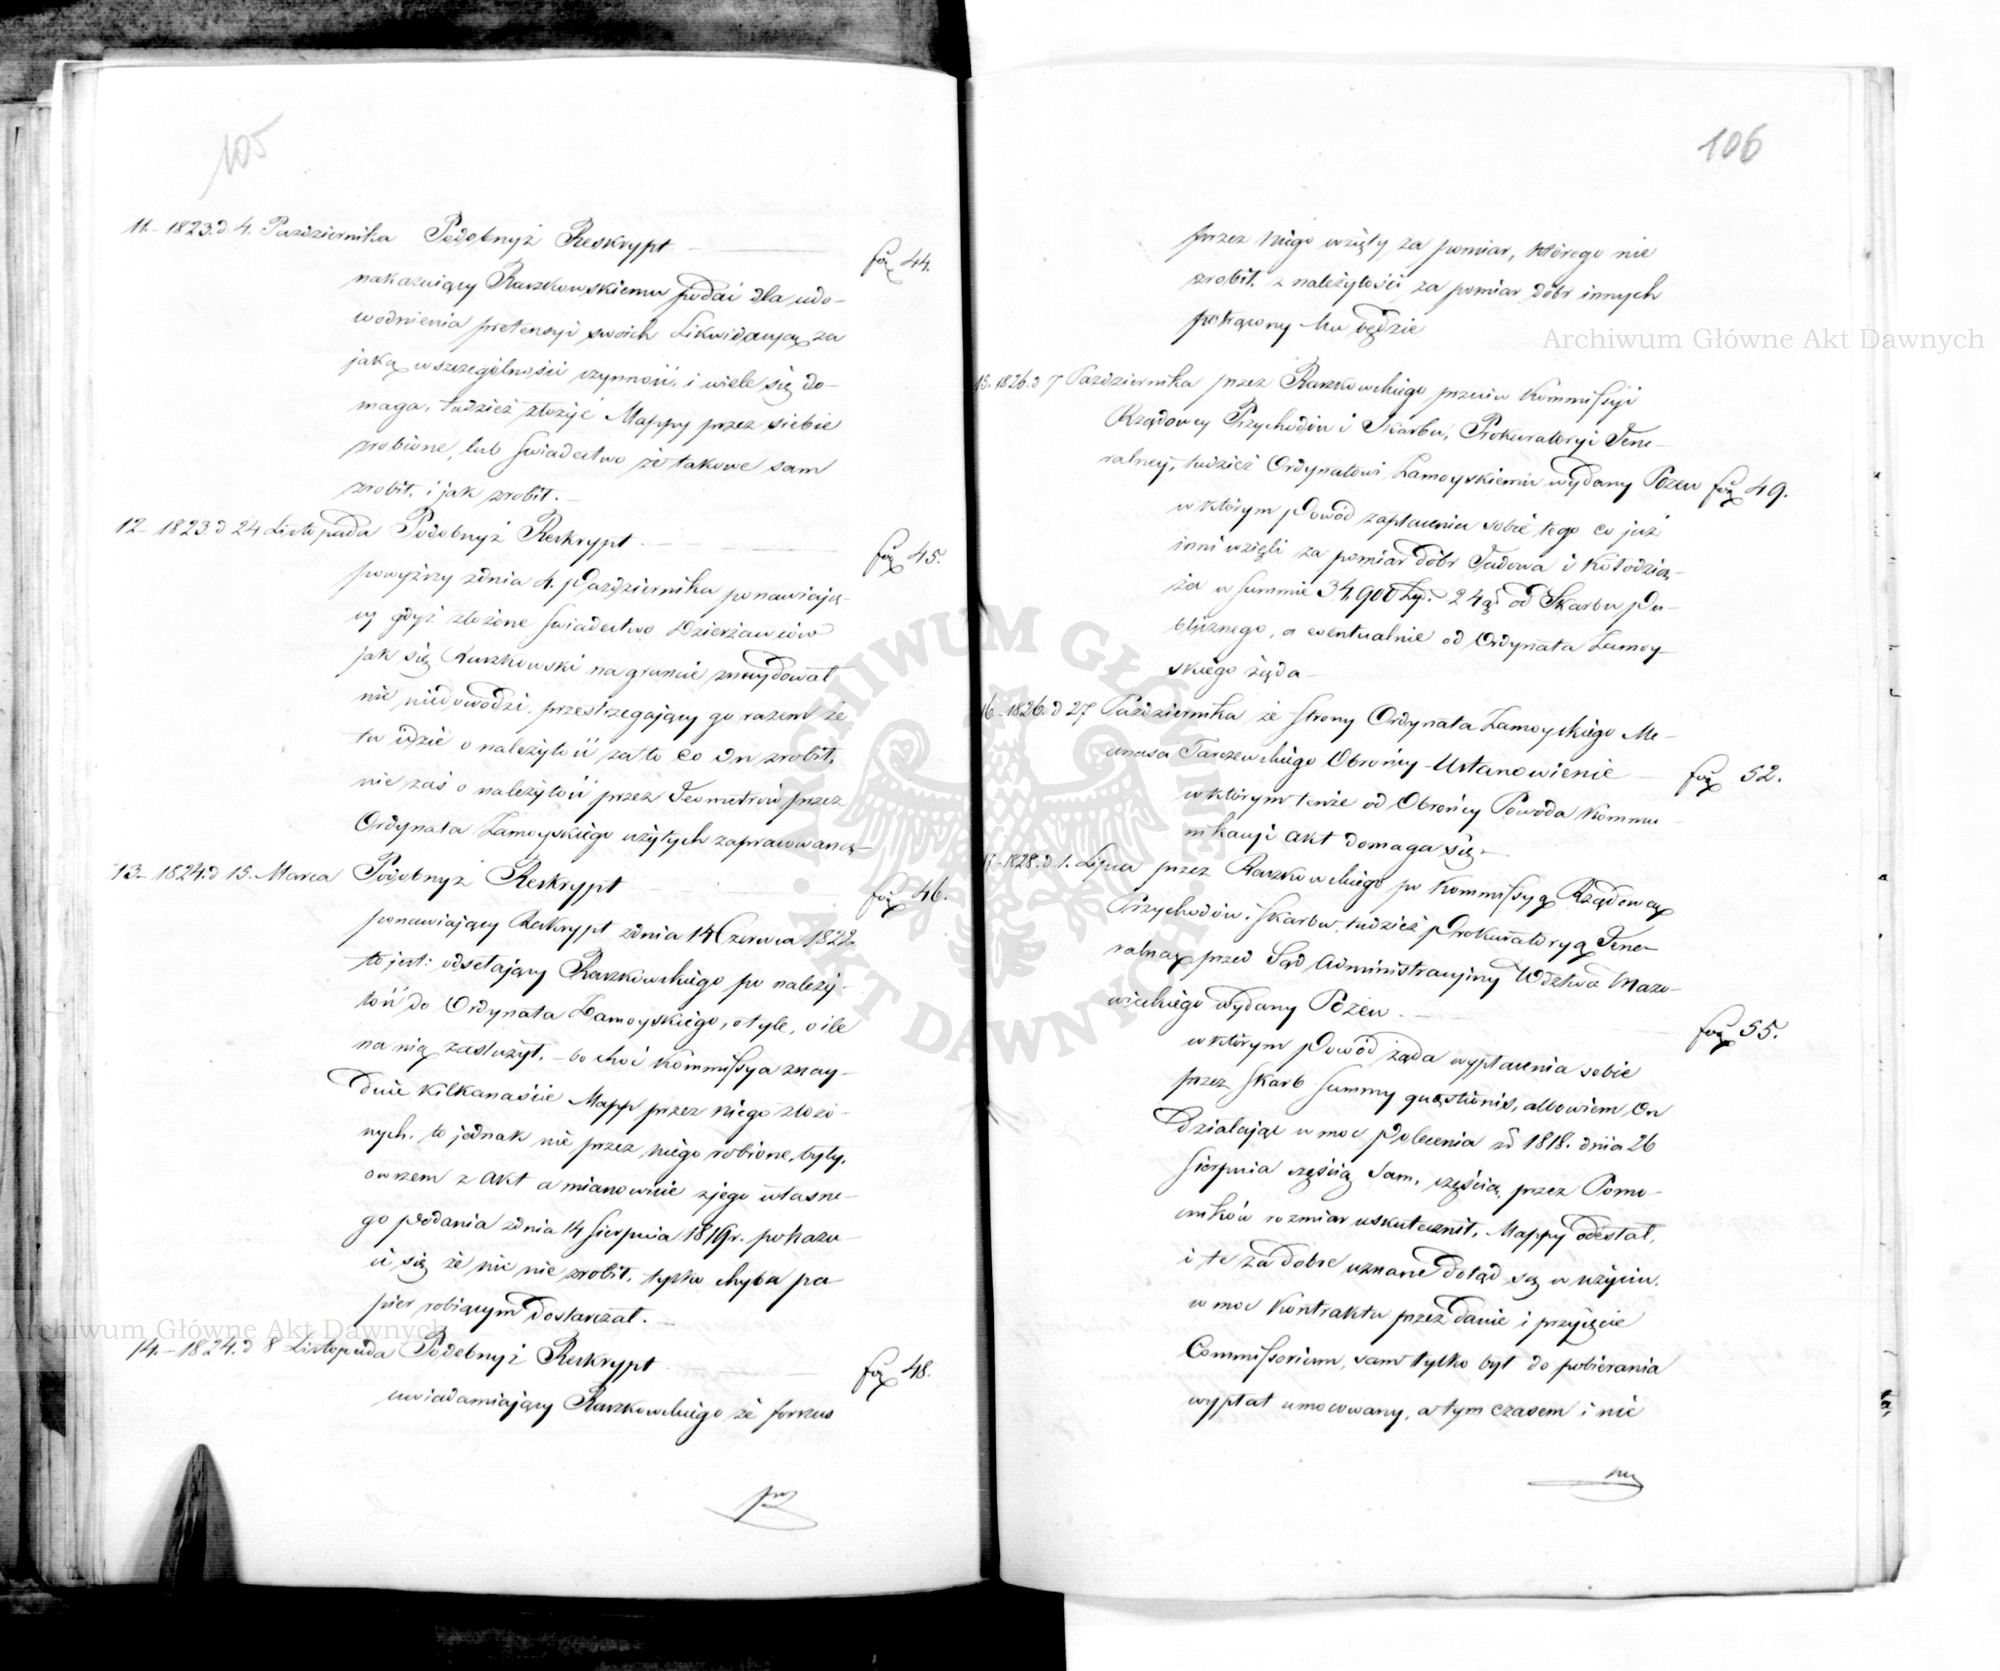 105
11.- 1823. d 4. Pazdziernika Podobnyż Reskrypt
fog 44.
nakazuiący Raszkowskiemu podać dla udo-
wodnienia pretensyi swoich Likwidacyą za
jaką wszczególności czynność, i wiele się do-
maga, tudzież złożyć Mappy przez siebie
zrobione, lub swiadectwo że takowe sam
zrobił, i jak zrobił.
12.- 1823. d 24 Listopada Podobnyż Reskrypt
fog 45.
powyższy zdnia 4. Pazdziernika ponawiają-
cy gdyż złożone swiadectwo Dzierżawców
jak się Raszkowski na gruncie znaydował
nic niedowodzi, przestrzegający go razem że
tu idzie o należytość za to co On zrobił,
nie zaś o należytość przez Jeometrów przez
Ordynata Zamoyskiego użytych zapracowaną
13.- 1824. d 15. Marca Podobnyż Reskrypt
fog 46.
ponawiający Reskrypt zdnia 14 Czerwca 1822.
to jest: odsełający Raszkowskiego po należy-
tość do Ordynata Zamoyskiego, o tyle, o ile
na nią zasłużył, - bo choć Kommissya znay-
duie kilkanaście Mapp przez niego złożo-
nych, to jednak nie przez niego robione były,
owszem z akt a mianowicie zjego własne-
go podania zdnia 14 Sierpnia 1819r. pokazu-
ie się że nic nie zrobił, tylko chyba pa-
pier robiącym dostarczał.
14.- 1824. d 8 Listopada Podobnyż Reskrypt
fog 48.
uwiadamiający Raszkowskiego że forszus
106
przez niego wzięty za pomiar, którego nie
zrobił, z należytości za pomiar dóbr innych
potrącony Mu będzie
15.- 1826. d 7 Pazdziernika przez Raszkowskiego przeciw Kommissyi
Rządowey Przychodów i Skarbu, Prokuratoryi Jene-
ralney, tudzież Ordynatowi Zamoyskiemu wydany Pozew fog 49.
w którym Powód zapłacenia sobie tego co już
inni wzięli za pomiar dóbr Tadowa i Kołodzią-
ża w summie 34,900 Zł. 24 g. od Skarbu Pu-
blicznego, a ewentualnie od Ordynata Zamoy-
skiego żąda
16.- 1826. d 27 Pazdziernika ze strony Ordynata Zamoyskiego Me-
cenasa Tarczewskiego Obrońcy Ustanowienie
fog 52.
w którym tenże od Obrońcy Powoda Kommu-
nikacyi akt domaga się.
17.- 1828. d 1. Lipca przez Raszkowskiego po Kommissyą Rządową
Przychodów i Skarbu, tudzież Prokuratoryą Jene-
ralną przed Sąd Administracyiny Wdztwa Mazo-
wieckiego wydany Pozew.
fog 55.
w którym Powód żąda wypłacenia sobie
przez Skarb summy quaestionis, albowiem On
działając w moc Polecenia zd 1818. dnia 26
Sierpnia częścią sam, częścią przez Pomo-
cników rozmiar uskutecznił, Mappy odesłał,
i te za dobre uznane dotąd są w użyciu.
w moc Kontraktu przez danie i przyięcie
Commissorium, sam tylko był do pobierania
wypłat umocowany, a tym czasem i nic
Archiwum Główne Akt Dawnych
Archiwum Główne Akt Dawnych
ARCHIWUM GŁÓWNE AKT DAWNYCH